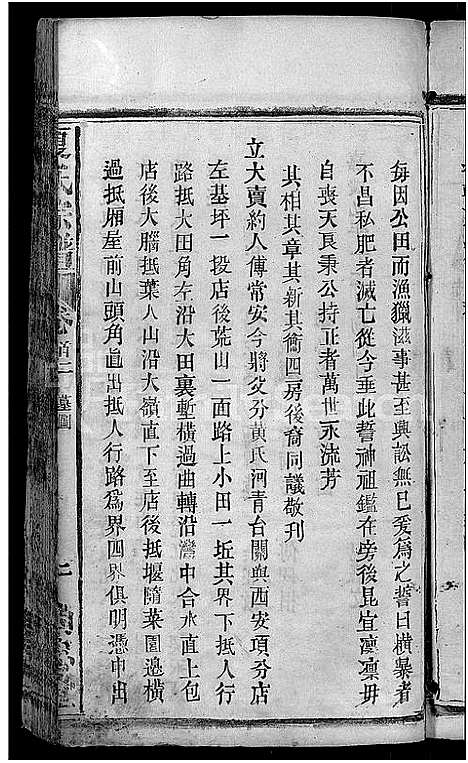 每因公田而漁獵滋事甚至興訟無已爰爲之誓曰橫暴者
不昌私肥者滅亡從今垂此誓神祖鑑在旁後昆宜凜凜毋
自喪天良秉公持正者萬世永流芳
其相其章其新其衡四房後裔同議敬刊
立大賣約人傅常安今將父分黃氏河青台關與西安項分店
左基坪一投店後荒山一面路上小田一坵其界下抵人行
路抵大田角左沿大田裏塹橫過曲轉沿灣中合水直上包
店後大腦抵葉人山沿大嶺直下至店後抵堰隨菜園邊橫
過抵厢屋前山頭角直出抵人行路爲界四界俱明憑中出
夏氏宗譜 卷首二 墓圖